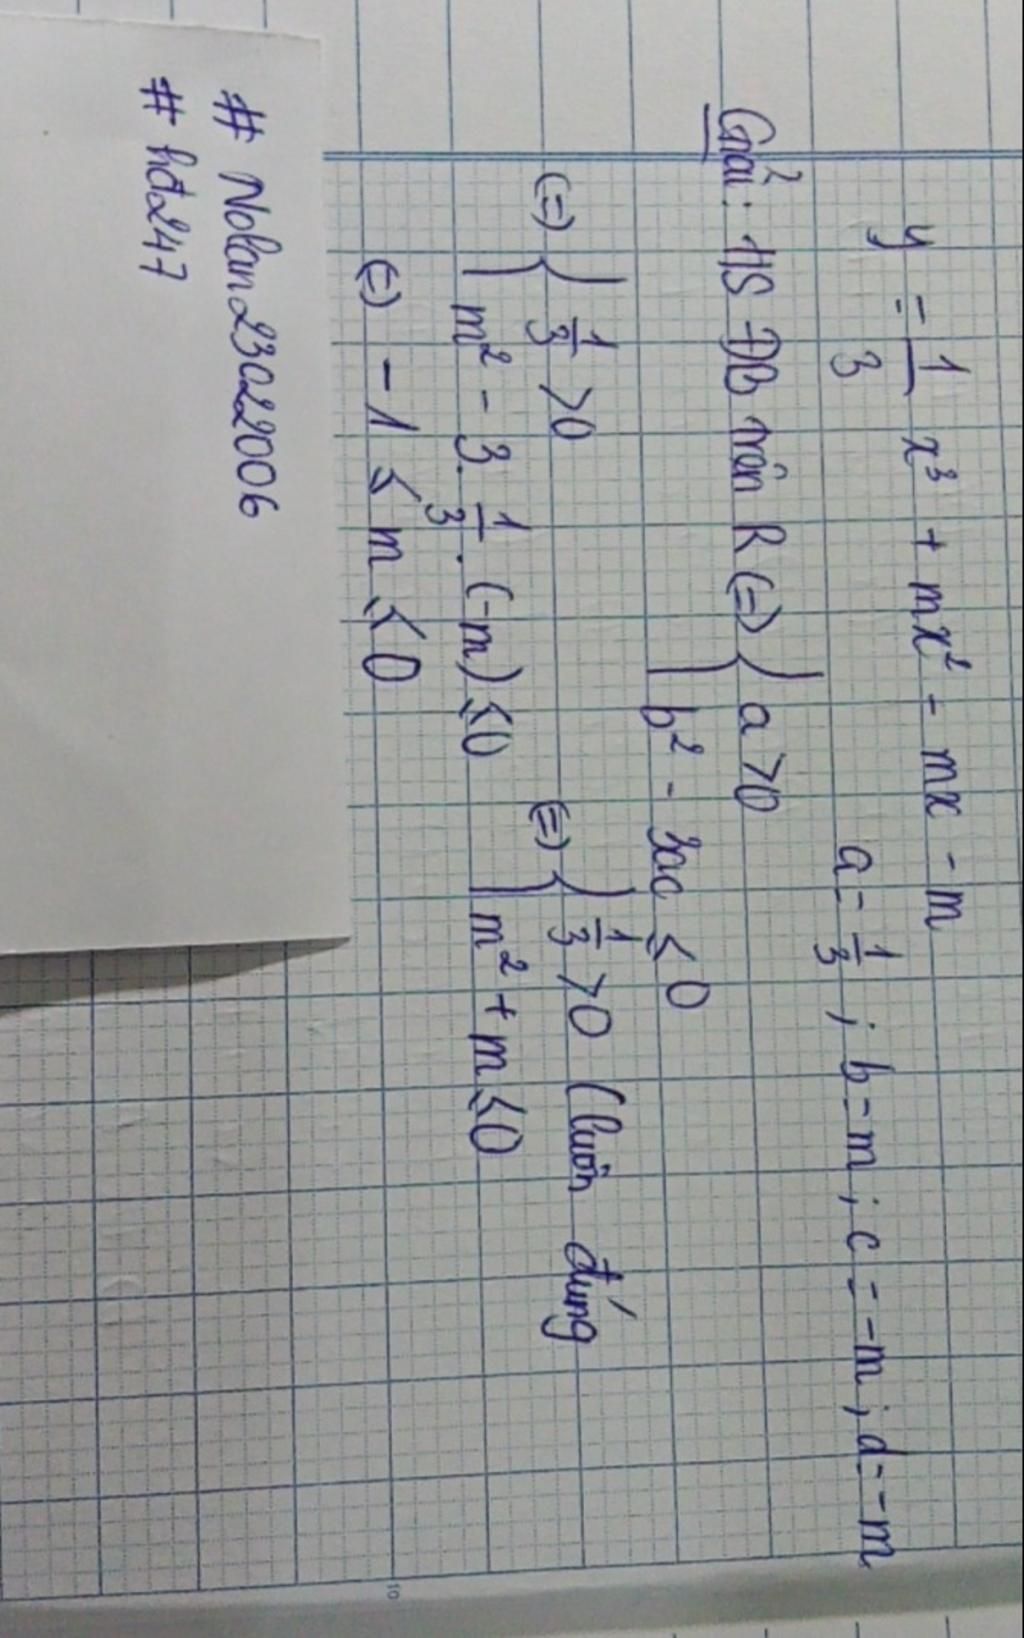 y = 1/3 x³ + mx² - mx - m
a = 1/3 ; b = m ; c = -m ; d = -m
Giải: HS ĐB trên R (=) { a > 0
b² - 3ac ≤ 0
(=) { 1/3 > 0
m² - 3 . 1/3 . (-m) ≤ 0
(=) { 1/3 > 0 (luôn đúng
m² + m ≤ 0
(=) - 1 ≤ m ≤ 0
# Nolan23022006
# hđ247
10